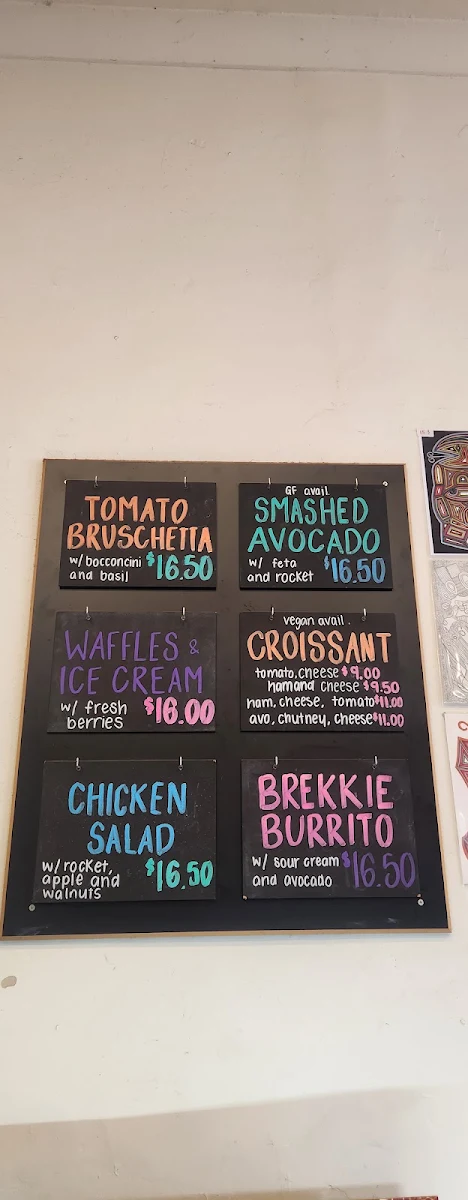 TOMATO
BRUSCHETTA
w/ bocconcini
and basil
$16.50
GF avail
SMASHED
AVOCADO
w/ feta
and rocket
$16.50
WAFFLES &
ICE CREAM
w/ fresh
berries
$16.00
vegan avail.
CROISSANT
tomato, cheese $9.00
ham and cheese $9.50
ham, cheese, tomato $11.00
avo, chutney, cheese $11.00
CHICKEN
SALAD
w/ rocket,
apple and
walnuts
$16.50
BREKKIE
BURRITO
w/ sour cream
and avocado
$16.50